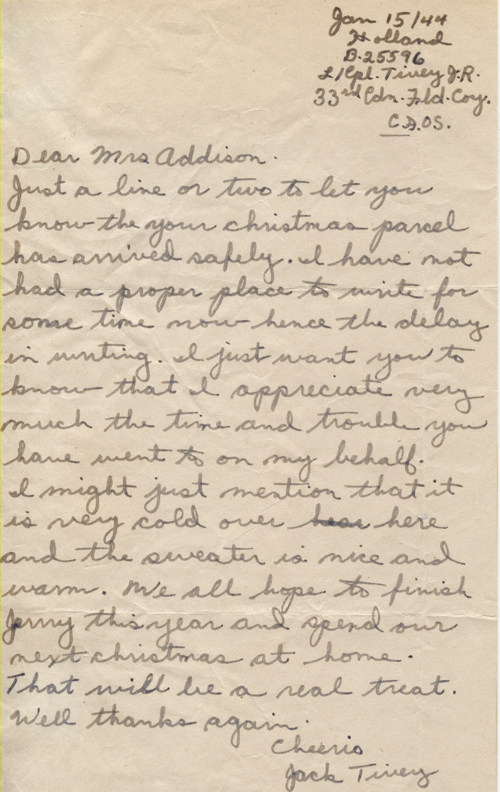 Jan 15/44
Holland
B-25596
L/Cpl. Tivey J.R.
33rd Cdn. Fld. Coy.
C.A.OS.
Dear Mrs Addison.
Just a line or two to let you
know the your christmas parcel
has arrived safely. I have not
had a proper place to write for
some time now hence the delay
in writing. I just want you to
know that I appreciate very
much the time and trouble you
have went to on my behalf.
I might just mention that it
is very cold over here
and the sweater is nice and
warm. We all hope to finish
Jerry this year and spend our
next christmas at home.
That will be a real treat.
Well thanks again.
Cheerio
Jack Tivey